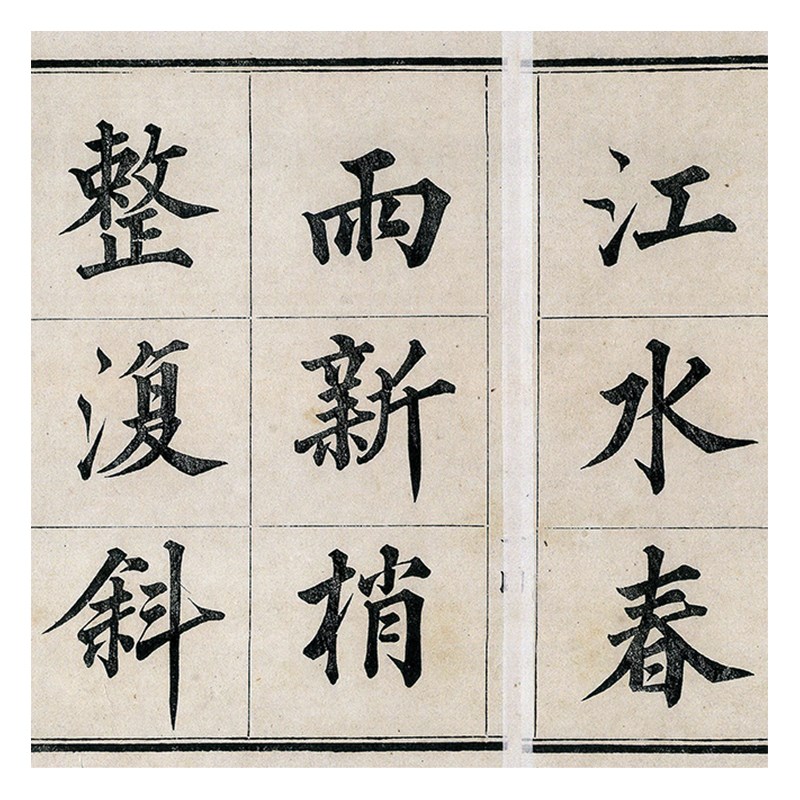 江水春
雨新梢
整復斜